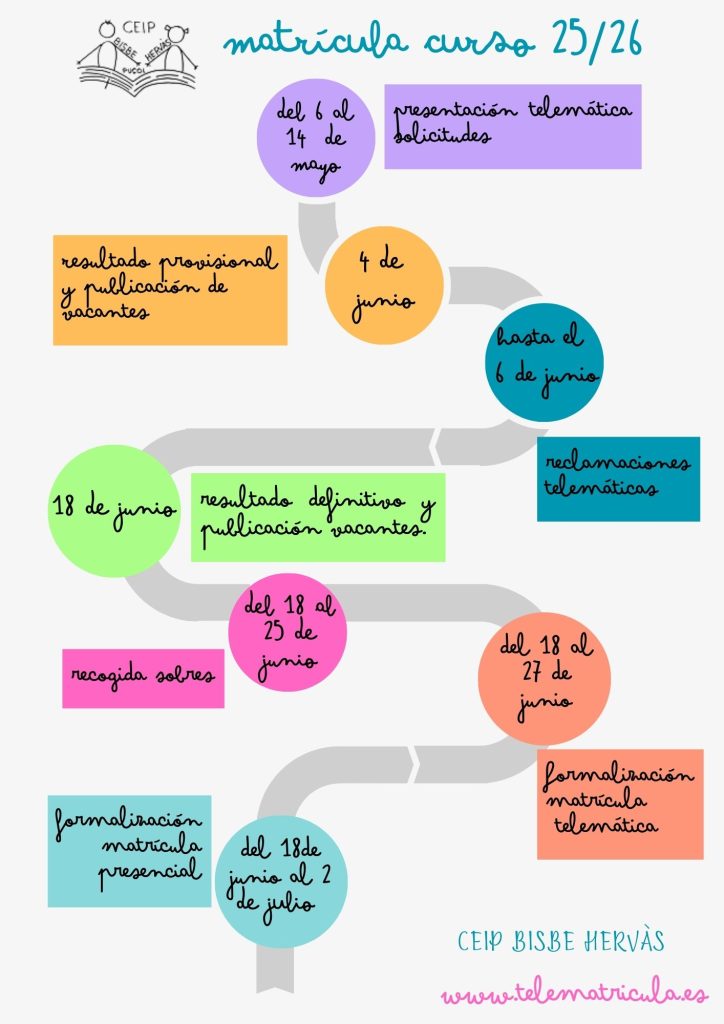 CEIP
BISBE HERVÀS
PUÇOL
matrícula curso 25/26
del 6 al
14 de
mayo
presentación telemática
solicitudes
resultado provisional
y publicación de
vacantes
4 de
junio
hasta el
6 de junio
reclamaciones
telemáticas
18 de junio
resultado definitivo y
publicación vacantes.
del 18 al
25 de
junio
recogida sobres
del 18 al
27 de
junio
formalización
matrícula
telemática
formalización
matrícula
presencial
del 18de
junio al 2
de julio
CEIP BISBE HERVÀS
www.telematricula.es